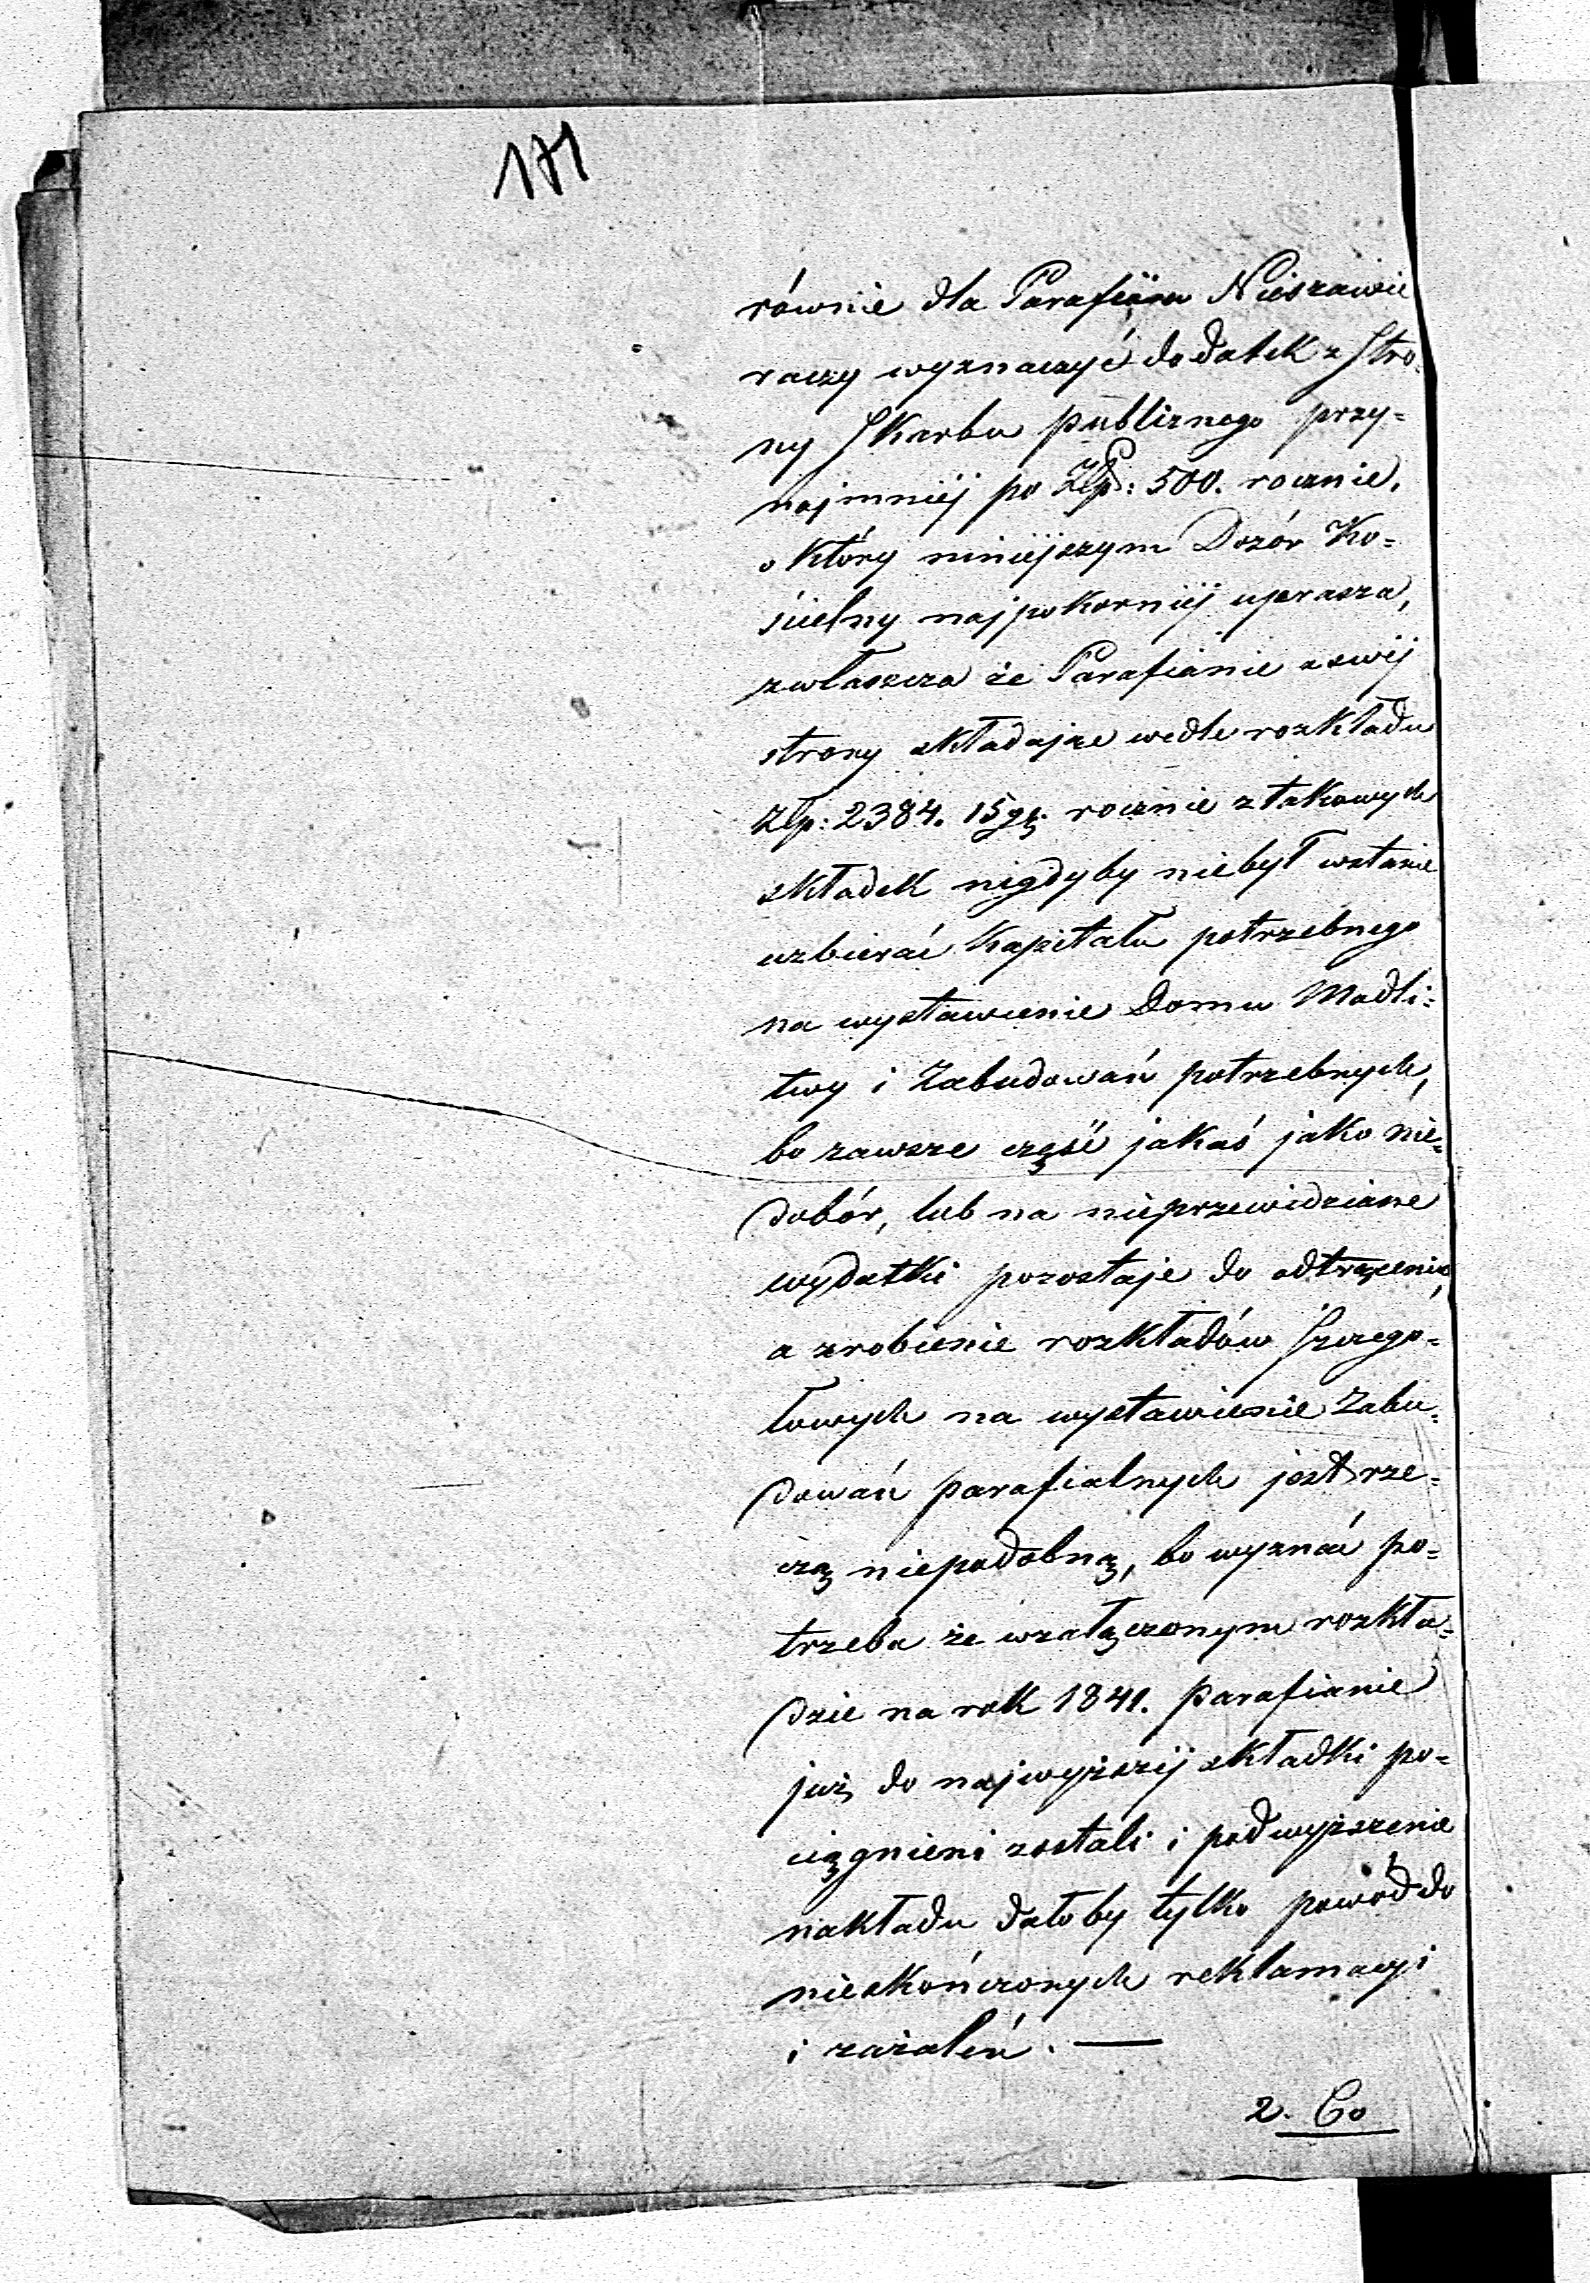 171
równie dla Parafiӥ w Nieszawie
raczy wyznaczyć dodatek z Stro=
ny Skarbu publicznego przy=
najmniéj po Złp: 500. rocznie,
o który niniéjszym Dozór Ko=
ścielny najpokorniéj uprasza,
zwłaszcza że Parafianie z swéj
strony składając wedle rozkładu
Złp: 2384. 15 gr. rocznie z takowych
składek nigdyby niebył wstanie
uzbierać Kapitału potrzebnego
na wystawienie Domu Modli=
twy i Zabudowań potrzebnych,
bo zawsze część jakaś jako nie=
dobór, lub na nieprzewidziane
wydatki pozostaje do odtrącenia,
a zrobienie rozkładów Szczegó=
łowych na wystawienie Zabu=
dowań parafialnych jest rze=
czą niepodobną, bo wyznać po=
trzeba że wzałączonym rozkła=
dzie na rok 1841. parafianie
już do najwyższéj składki po=
ciągnieni zostali i podwyższenie
nakładu dałoby tylko powód do
nieskończonych reklamacyi
i zażaleń. —
2. Co